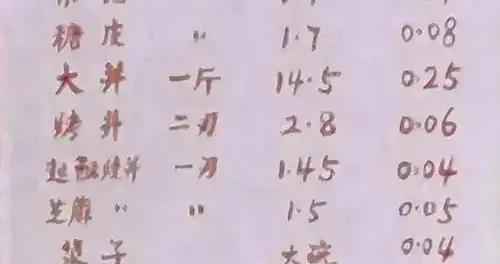 糖皮 〃 1.7 0.08
大并 一斤 14.5 0.25
烤并 二刃 2.8 0.06
起酥烧并 一刃 1.45 0.04
芝麻〃〃 〃 1.5 0.05
子 大 0.04